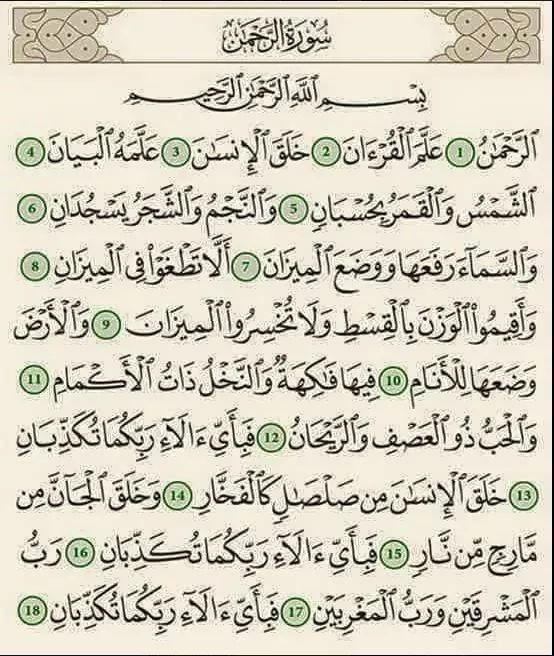 سُورَةُ الرَّحْمَٰن
بِسْمِ ٱللَّهِ ٱلرَّحْمَٰنِ ٱلرَّحِيمِ
ٱلرَّحْمَٰنُ 1 عَلَّمَ ٱلْقُرْءَانَ 2 خَلَقَ ٱلْإِنسَٰنَ 3 عَلَّمَهُ ٱلْبَيَانَ 4
ٱلشَّمْسُ وَٱلْقَمَرُ بِحُسْبَانٍ 5 وَٱلنَّجْمُ وَٱلشَّجَرُ يَسْجُدَانِ 6
وَٱلسَّمَآءَ رَفَعَهَا وَوَضَعَ ٱلْمِيزَانَ 7 أَلَّا تَطْغَوْا۟ فِى ٱلْمِيزَانِ 8
وَأَقِيمُوا۟ ٱلْوَزْنَ بِٱلْقِسْطِ وَلَا تُخْسِرُوا۟ ٱلْمِيزَانَ 9 وَٱلْأَرْضَ
وَضَعَهَا لِلْأَنَامِ 10 فِيهَا فَٰكِهَةٌ وَٱلنَّخْلُ ذَاتُ ٱلْأَكْمَامِ 11
وَٱلْحَبُّ ذُو ٱلْعَصْفِ وَٱلرَّيْحَانُ 12 فَبِأَىِّ ءَالَآءِ رَبِّكُمَا تُكَذِّبَانِ
13 خَلَقَ ٱلْإِنسَٰنَ مِن صَلْصَٰلٍ كَٱلْفَخَّارِ 14 وَخَلَقَ ٱلْجَآنَّ مِن
مَّارِجٍ مِّن نَّارٍ 15 فَبِأَىِّ ءَالَآءِ رَبِّكُمَا تُكَذِّبَانِ 16 رَبُّ
ٱلْمَشْرِقَيْنِ وَرَبُّ ٱلْمَغْرِبَيْنِ 17 فَبِأَىِّ ءَالَآءِ رَبِّكُمَا تُكَذِّبَانِ 18